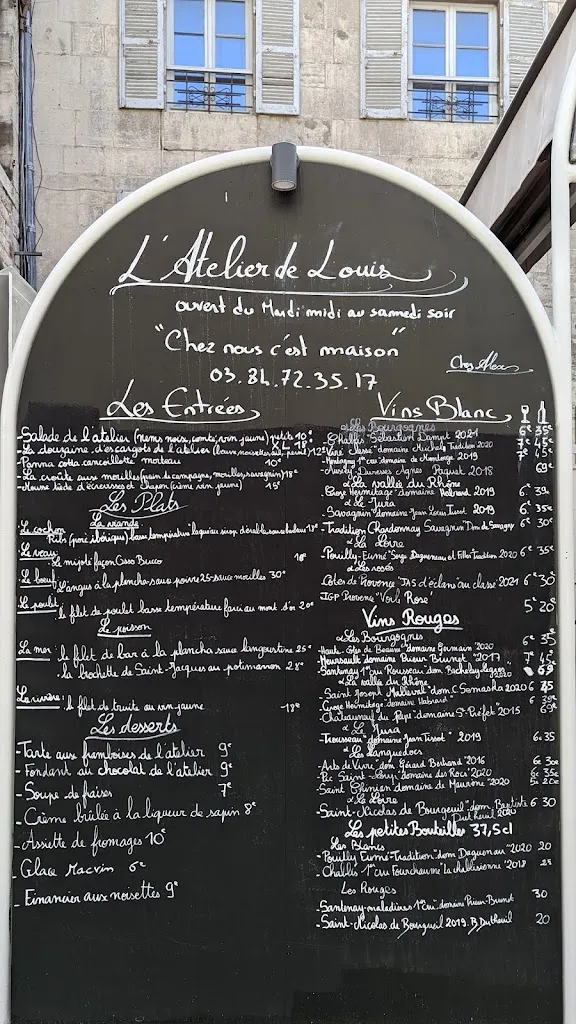 L'Atelier de Louis
ouvert du Mardi midi au samedi soir
"Chez nous c'est maison"
03.84.72.35.17
Chez Alex
Les Entrées
-Salade de l'atelier (nems noix, comté, vin jaune) petite 10€
-La douzaine d'escargots de l'atelier 12€
-Panna cotta cancoillotte morteau 10€
-La croûte aux morilles (pain de campagne, morilles, sauvagnin) 18€
15€
Les Plats
La viande
Le cochon
Le veau: Le mijoté façon Osso Bucco
Le boeuf: L'angus à la plancha, sauce poivre 25 - sauce morilles 30€
Le poulet: le filet de poulet basse température farci au mont d'or 20€
Le poisson
La mer: le filet de bar à la plancha sauce langoustine 25€
la brochette de Saint-Jacques au potimarron
La rivière: le filet de truite au vin jaune
Les desserts
-Tarte aux framboises de l'atelier 9€
-Fondant au chocolat de l'atelier 9€
-Soupe de fraises 7€
-Crème brûlée à la liqueur de sapin 8€
-Assiette de fromages 10€
-Glace Macvin 6€
-Financier aux noisettes 9€
Vins Blanc
Les Bourgognes 6€ 35€
-Chablis Sébastien Dampt 2021
-Viré Clessé domaine Michel Tradition 2020
-Montagny 1er cru domaine de Montorge 2019
Agnès Paquet 2018 69€
La vallée du Rhône
-Croze Hermitage domaine 2019 6€ 39€
Le Jura
-Savagnin domaine Jean Louis Tissot 2019 6€ 35€
-Tradition Chardonnay Savagnin Dom de Savagny 6€ 30€
La Loire
-Pouilly-Fumé "Serge Dagueneau et Filles Tradition 2020 6€ 35€
Les rosés
Côtes de Provence 2021 6€ 30
IGP Provence "Rosé" 5€ 20€
Vins Rouges
Les Bourgognes 6€ 35
-Haute-Côtes de Beaune "domaine Germain" 2020
-Meursault domaine Prieur Brunet "2017
-Santenay 1er cru Rousseau dom. 2020 69
La vallée du Rhône
Saint Joseph dom. 2020
Croze Hermitage domaine
-Chateauneuf du Pape "domaine St-Préfet" 2015
Le Jura
-Trousseau domaine Jean Tissot " 2019 6€ 35
Les Languedocs
-Arts de Vivre, dom Gérard Bertrand 2016 6€ 30€
-Pic Saint-Loup, domaine des Roca 2020 6€ 35€
-Saint Chinian domaine de 2020 5€ 20€
La Loire
-Saint-Nicolas de Bourgueil "dom. Baptiste 6 30
Dutheuil 2020
Les petites Bouteilles 37,5cl
Les Blancs
-Pouilly Fumé-Tradition "dom Daguenau" 2020 20
-Chablis 1er cru Fourchaume La chablisienne 2018
Les Rouges
-Santenay-maladières 1er cru domaine Prieur-Brunet 30
-Saint-Nicolas de Bourgueil 2019. B. Dutheuil 20